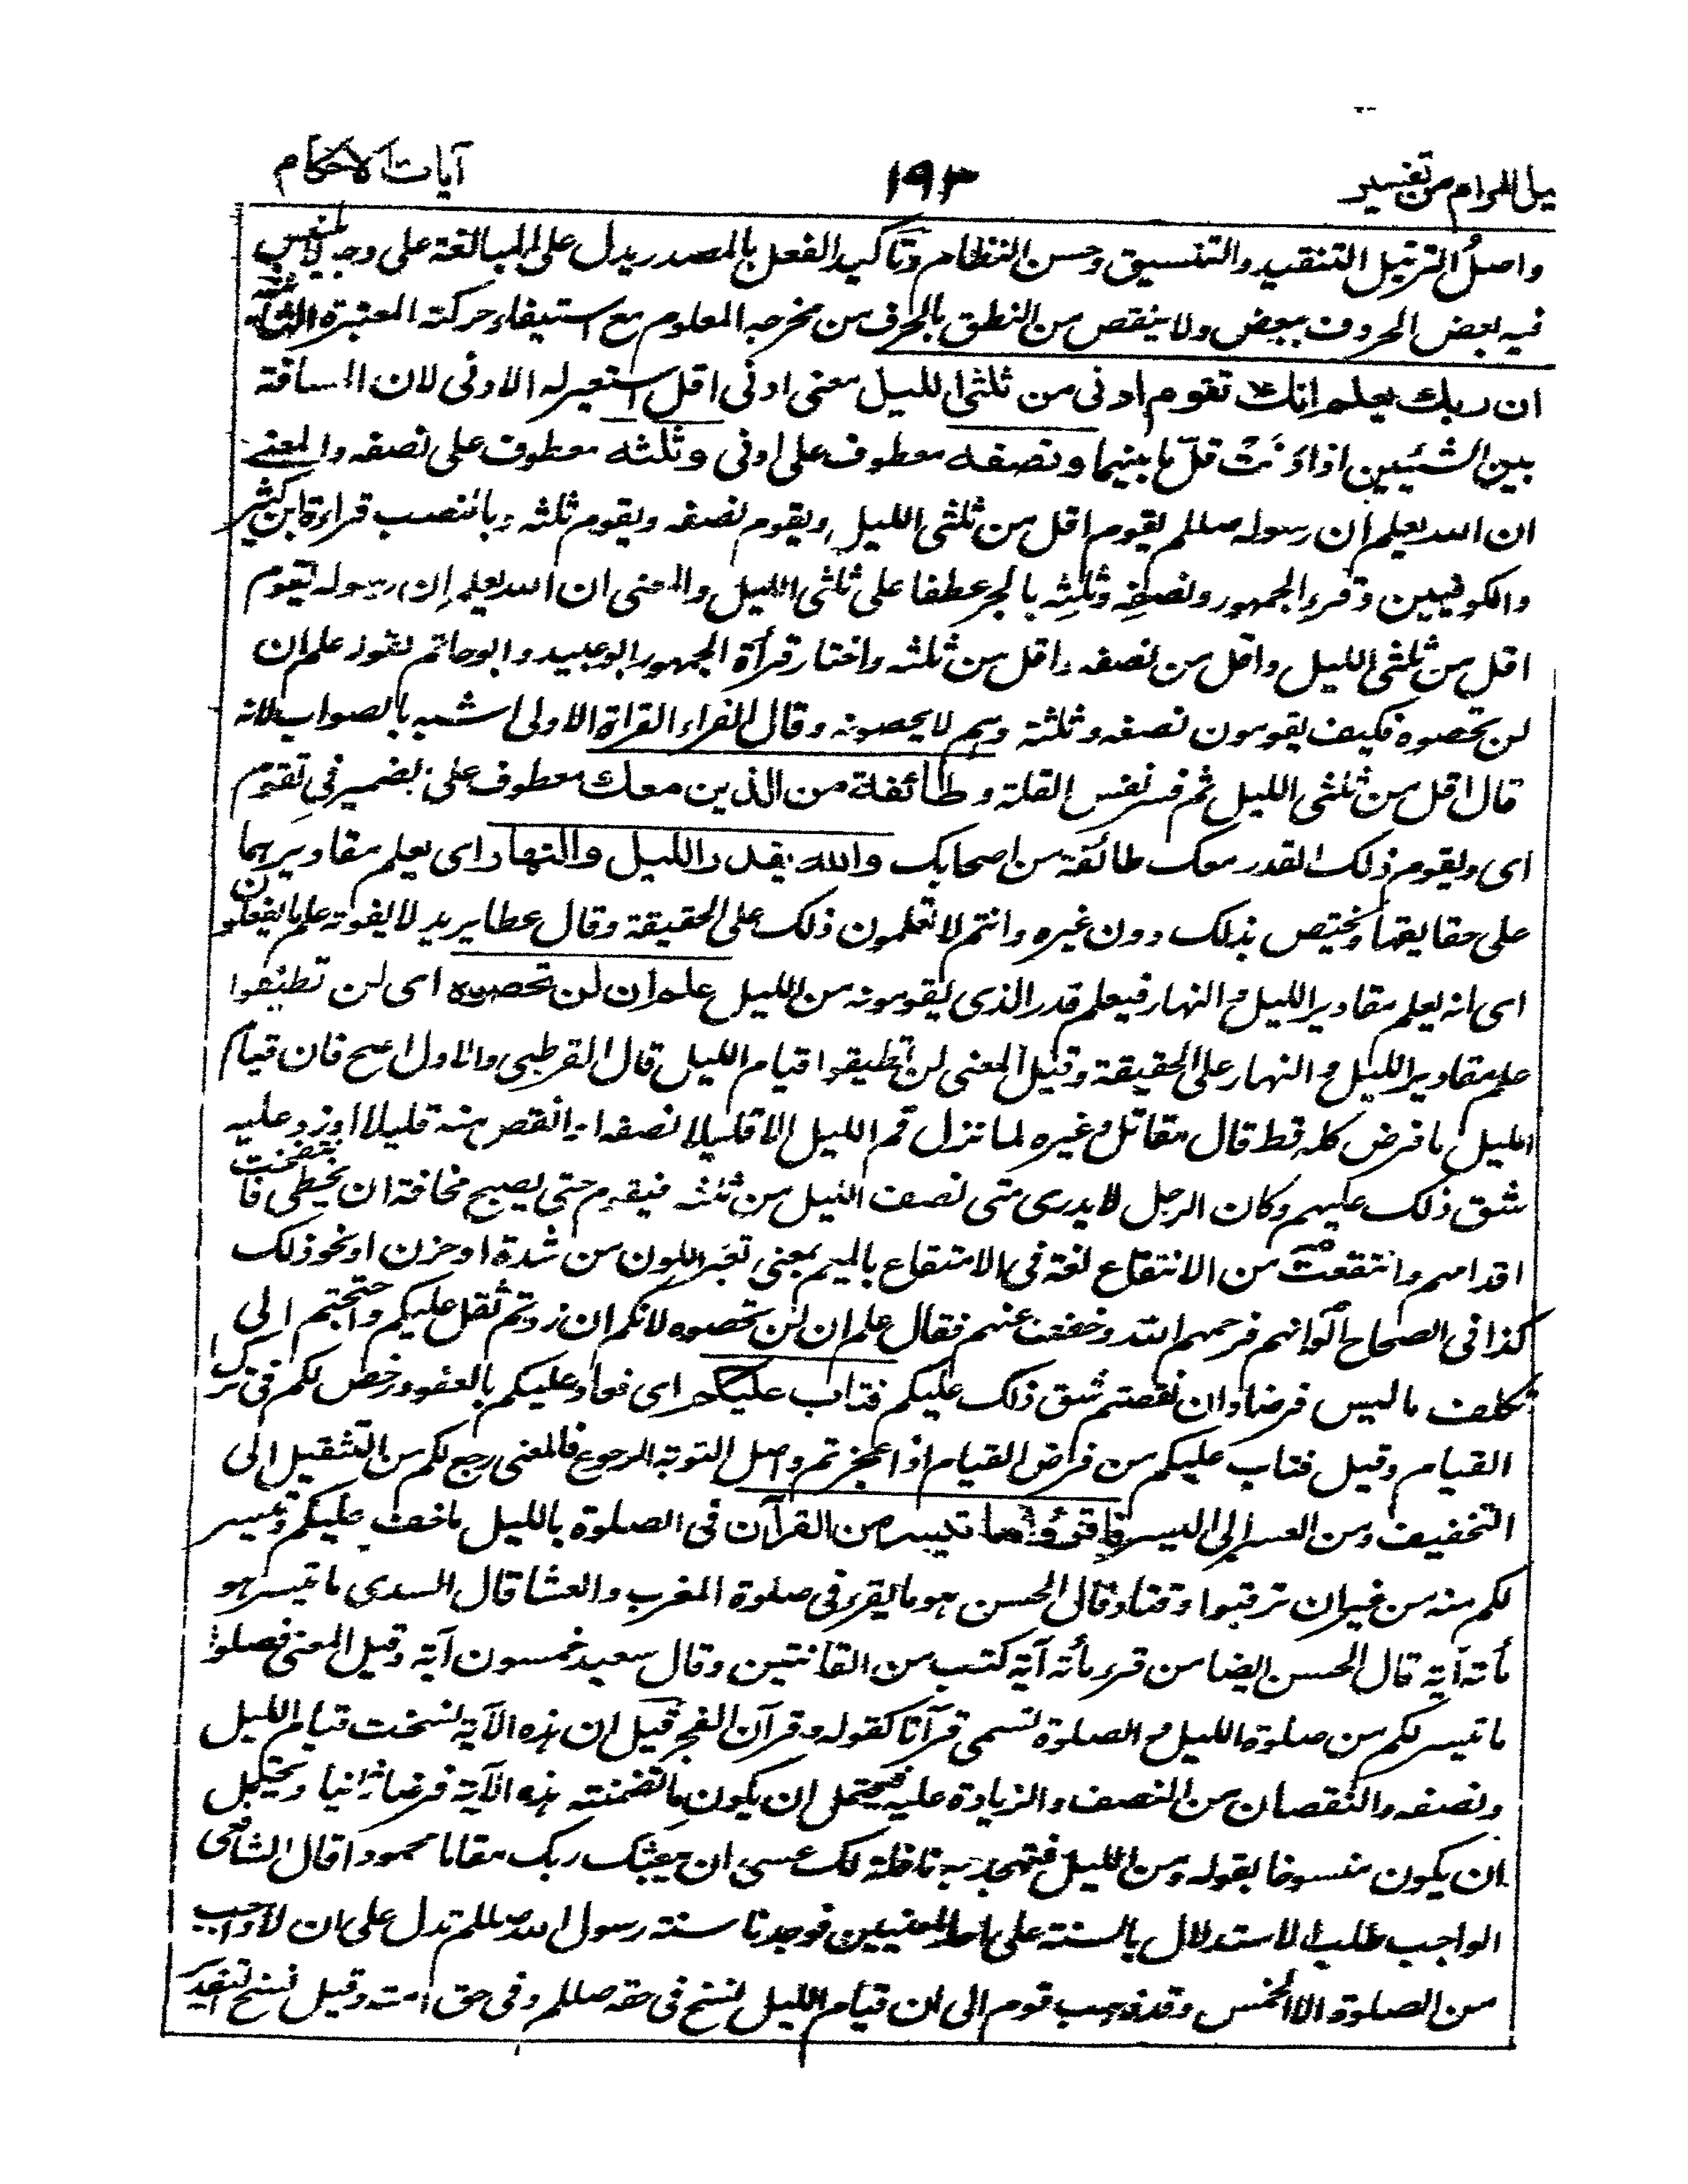 نيل المرام من تفسير ١٩٣ آيات الاحكام
واصل الترتيل التنضيد والتنسيق وحسن النظام وتاكيد الفعل بالمصدر يدل على المبالغة على وجه لا يلتبس
فيه بعض الحروف ببعض ولا ينقص من النطق بالحرف من مخرجه المعلوم مع استيفاء حركته المعتبرة الثالثة
ان ربك يعلم انك تقوم ادنى من ثلثى الليل معنى ادنى اقل استعير له الادنى لان المسافة
بين الشيئين اذا دنت قل ما بينهما ونصفه معطوف على ادنى وثلثه معطوف على نصفه والمعنى
ان الله يعلم ان رسوله صللم يقوم اقل من ثلثى الليل ويقوم نصفه ويقوم ثلثه وبالنصب قراءة ابن كثير
والكوفيين وقرء الجمهور ونصفه وثلثه بالجر عطفا على ثلثى الليل والمعنى ان الله يعلم ان رسوله يقوم
اقل من ثلثى الليل واقل من نصفه واقل من ثلثه واختار قرأة الجمهور ابو عبيد وابو حاتم لقوله علم ان
لن تحصوه فكيف يقومون نصفه وثلثه وهم لا يحصونه وقال الفراء القراة الاولى اشبه بالصواب لانه
قال اقل من ثلثى الليل ثم فسر نفس القلة وطائفة من الذين معك معطوف على الضمير فى تقوم
اى ويقوم ذلك القدر معك طائفة من اصحابك والله يقدر الليل والنهار اى يعلم مقاديرهما
على حقايقها ويختص بذلك دون غيره وانتم لا تعلمون ذلك على الحقيقة وقال عطا يريد لا يفوته علم ما يفعلون
اى انه يعلم مقادير الليل والنهار فيعلم قدر الذى يقومونه من الليل علم ان لن تحصوه اى لن تطيقوا
علم مقادير الليل والنهار على الحقيقة وقيل المعنى لن تطيقوا قيام الليل قال القرطبى والاول اصح فان قيام
الليل ما فرض كله قط قال مقاتل وغيره لما نزل قم الليل الا قليلا نصفه او انقص منه قليلا او زد عليه
شق ذلك عليهم وكان الرجل لا يدرى متى نصف الليل من ثلثه فيقوم حتى يصبح مخافة ان يخطى فانتفخت
اقدامهم وانتقعت من الانتقاع لغة فى الامتقاع بالميم بمعنى تغير اللون من شدة او حزن او نحو ذلك
كذا فى الصحاح الوانهم فرحمهم الله وخفف عنهم فقال علم ان لن تحصوه لانكم ان زدتم ثقل عليكم واحتجتم الى
تكلف ما ليس فرضا وان نقصتم شق ذلك عليكم فتاب عليكم اى فعاد عليكم بالعفو ورخص لكم فى ترك
القيام وقيل فتاب عليكم من فرض القيام اذا عجزتم واصل التوبة الرجوع فالمعنى رجع لكم من التثقيل الى
التخفيف ومن العسر الى اليسر فاقرؤا ما تيسر من القرآن فى الصلوة بالليل ما خف عليكم وتيسر
لكم منه من غير ان ترقبوا وقتا وقال الحسن هو ما يقرء فى صلوة المغرب والعشا قال السدى ما تيسر هو
مأته آية قال الحسن ايضا من قرء مأته آية كتب من القانتين وقال سعيد خمسون آية وقيل المعنى فصلوا
ما تيسر لكم من صلوة الليل والصلوة تسمى قرآنا كقوله وقرآن الفجر قيل ان هذه الآية نسخت قيام الليل
ونصفه والنقصان من النصف والزيادة عليه فيحتمل ان يكون ما تضمنته هذه الآية فرضا ثانيا ويحتمل
ان يكون منسوخا بقوله ومن الليل فتهجد به نافلة لك عسى ان يبعثك ربك مقاما محمودا قال الشافعى
الواجب طلب الاستدلال بالسنة على احد المعنيين فوجدنا سنة رسول الله صللم تدل على ان لا واجب
من الصلوة الا الخمس وقد ذهب قوم الى ان قيام الليل نسخ فى حقه صللم وفى حق امته وقيل نسخ التقدير